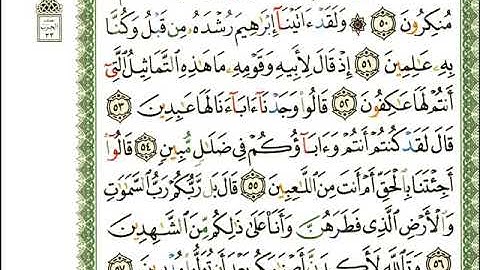 مُنكِرُونَ ٥٠ ۞ وَلَقَدْ ءَاتَيْنَآ إِبْرَٰهِيمَ رُشْدَهُۥ مِن قَبْلُ وَكُنَّا
بِهِۦ عَٰلِمِينَ ٥١ إِذْ قَالَ لِأَبِيهِ وَقَوْمِهِۦ مَا هَٰذِهِ ٱلتَّمَاثِيلُ ٱلَّتِىٓ
أَنتُمْ لَهَا عَٰكِفُونَ ٥٢ قَالُوا۟ وَجَدْنَآ ءَابَآءَنَا لَهَا عَٰبِدِينَ ٥٣
قَالَ لَقَدْ كُنتُمْ أَنتُمْ وَءَابَآؤُكُمْ فِى ضَلَٰلٍ مُّبِينٍ ٥٤ قَالُوٓا۟
أَجِئْتَنَا بِٱلْحَقِّ أَمْ أَنتَ مِنَ ٱللَّٰعِبِينَ ٥٥ قَالَ بَل رَّبُّكُمْ رَبُّ ٱلسَّمَٰوَٰتِ
وَٱلْأَرْضِ ٱلَّذِى فَطَرَهُنَّ وَأَنَا۠ عَلَىٰ ذَٰلِكُم مِّنَ ٱلشَّٰهِدِينَ
٥٦ وَتَٱللَّهِ لَأَكِيدَنَّ أَصْنَٰمَكُم بَعْدَ أَن تُوَلُّوا۟ مُدْبِرِينَ ٥٧